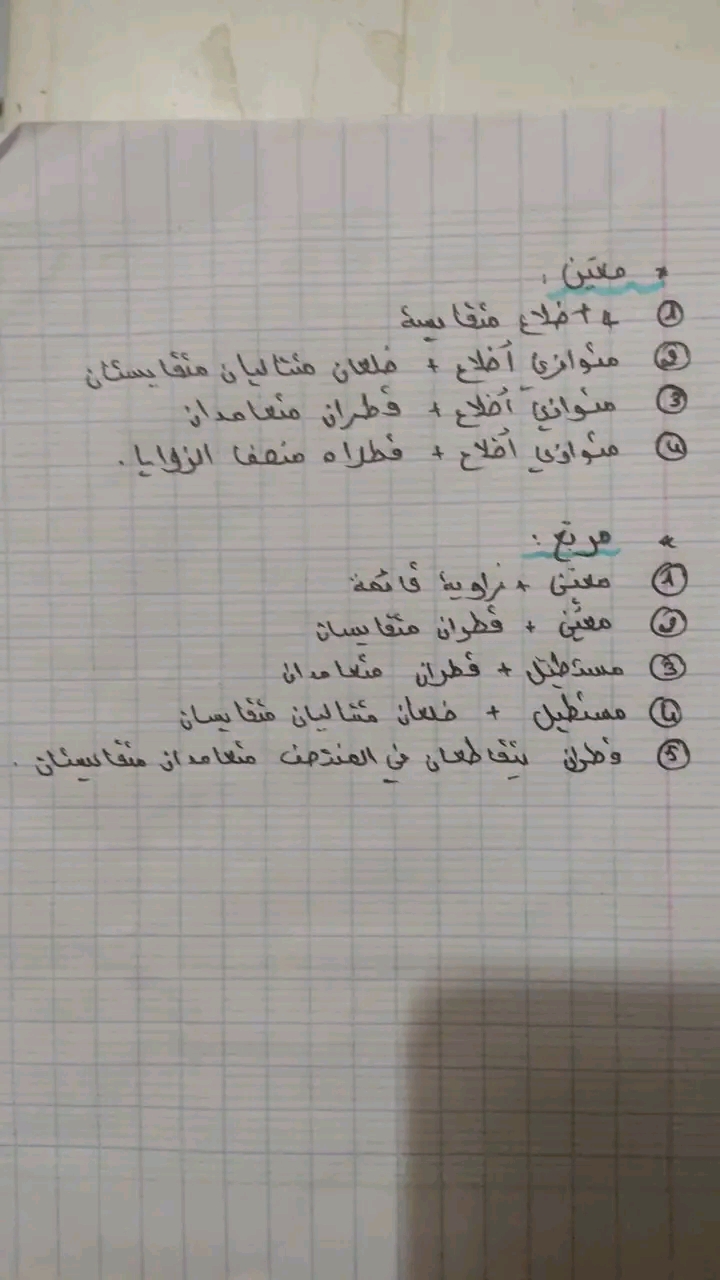 * معين :
① 4 أضلاع متقايسة
② متوازي أضلاع + ضلعان متتاليان متقايستان
③ متوازي أضلاع + قطران متعامدان
④ متوازي أضلاع + قطراه منصفا الزوايا .
* مربع :
① معين + زاوية قائمة
② معين + قطران متقايسان
③ مستطيل + قطران متعامدان
④ مستطيل + ضلعان متتاليان متقايسان
⑤ قطران يتقاطعان في المنتصف متعامدان متقايستان .